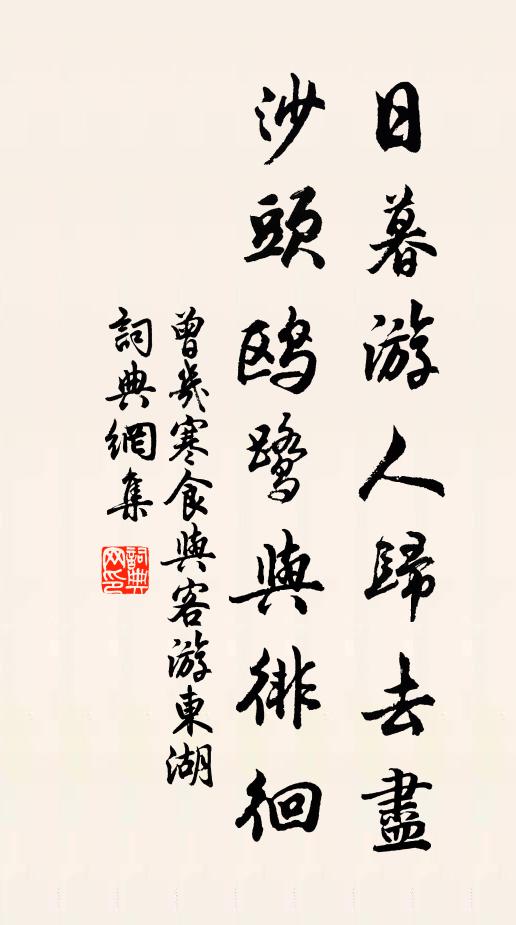 日暮游人歸去盡
沙頭鸥鹭與徘徊
曾幾寒食與客游東湖
詞典網集
詞典网印